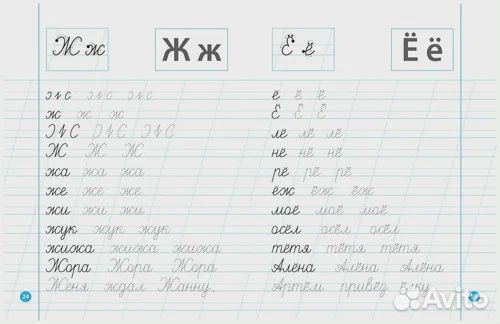 Ж ж
Ж ж
ж ж ж
Ж Ж Ж
жа жа жа
же же же
жи жи жи
жук жук жук
жижа жижа жижа
Жора Жора Жора
Женя ждал Жанну.
24
Ё ё
Ё ё
ё ё ё
Ё Ё Ё
лё лё лё
нё нё нё
рё рё рё
ёж ёж ёж
моё моё моё
осёл осёл осёл
тётя тётя тётя
Алёна Алёна Алёна
Артём привёз ёлку.
Avito